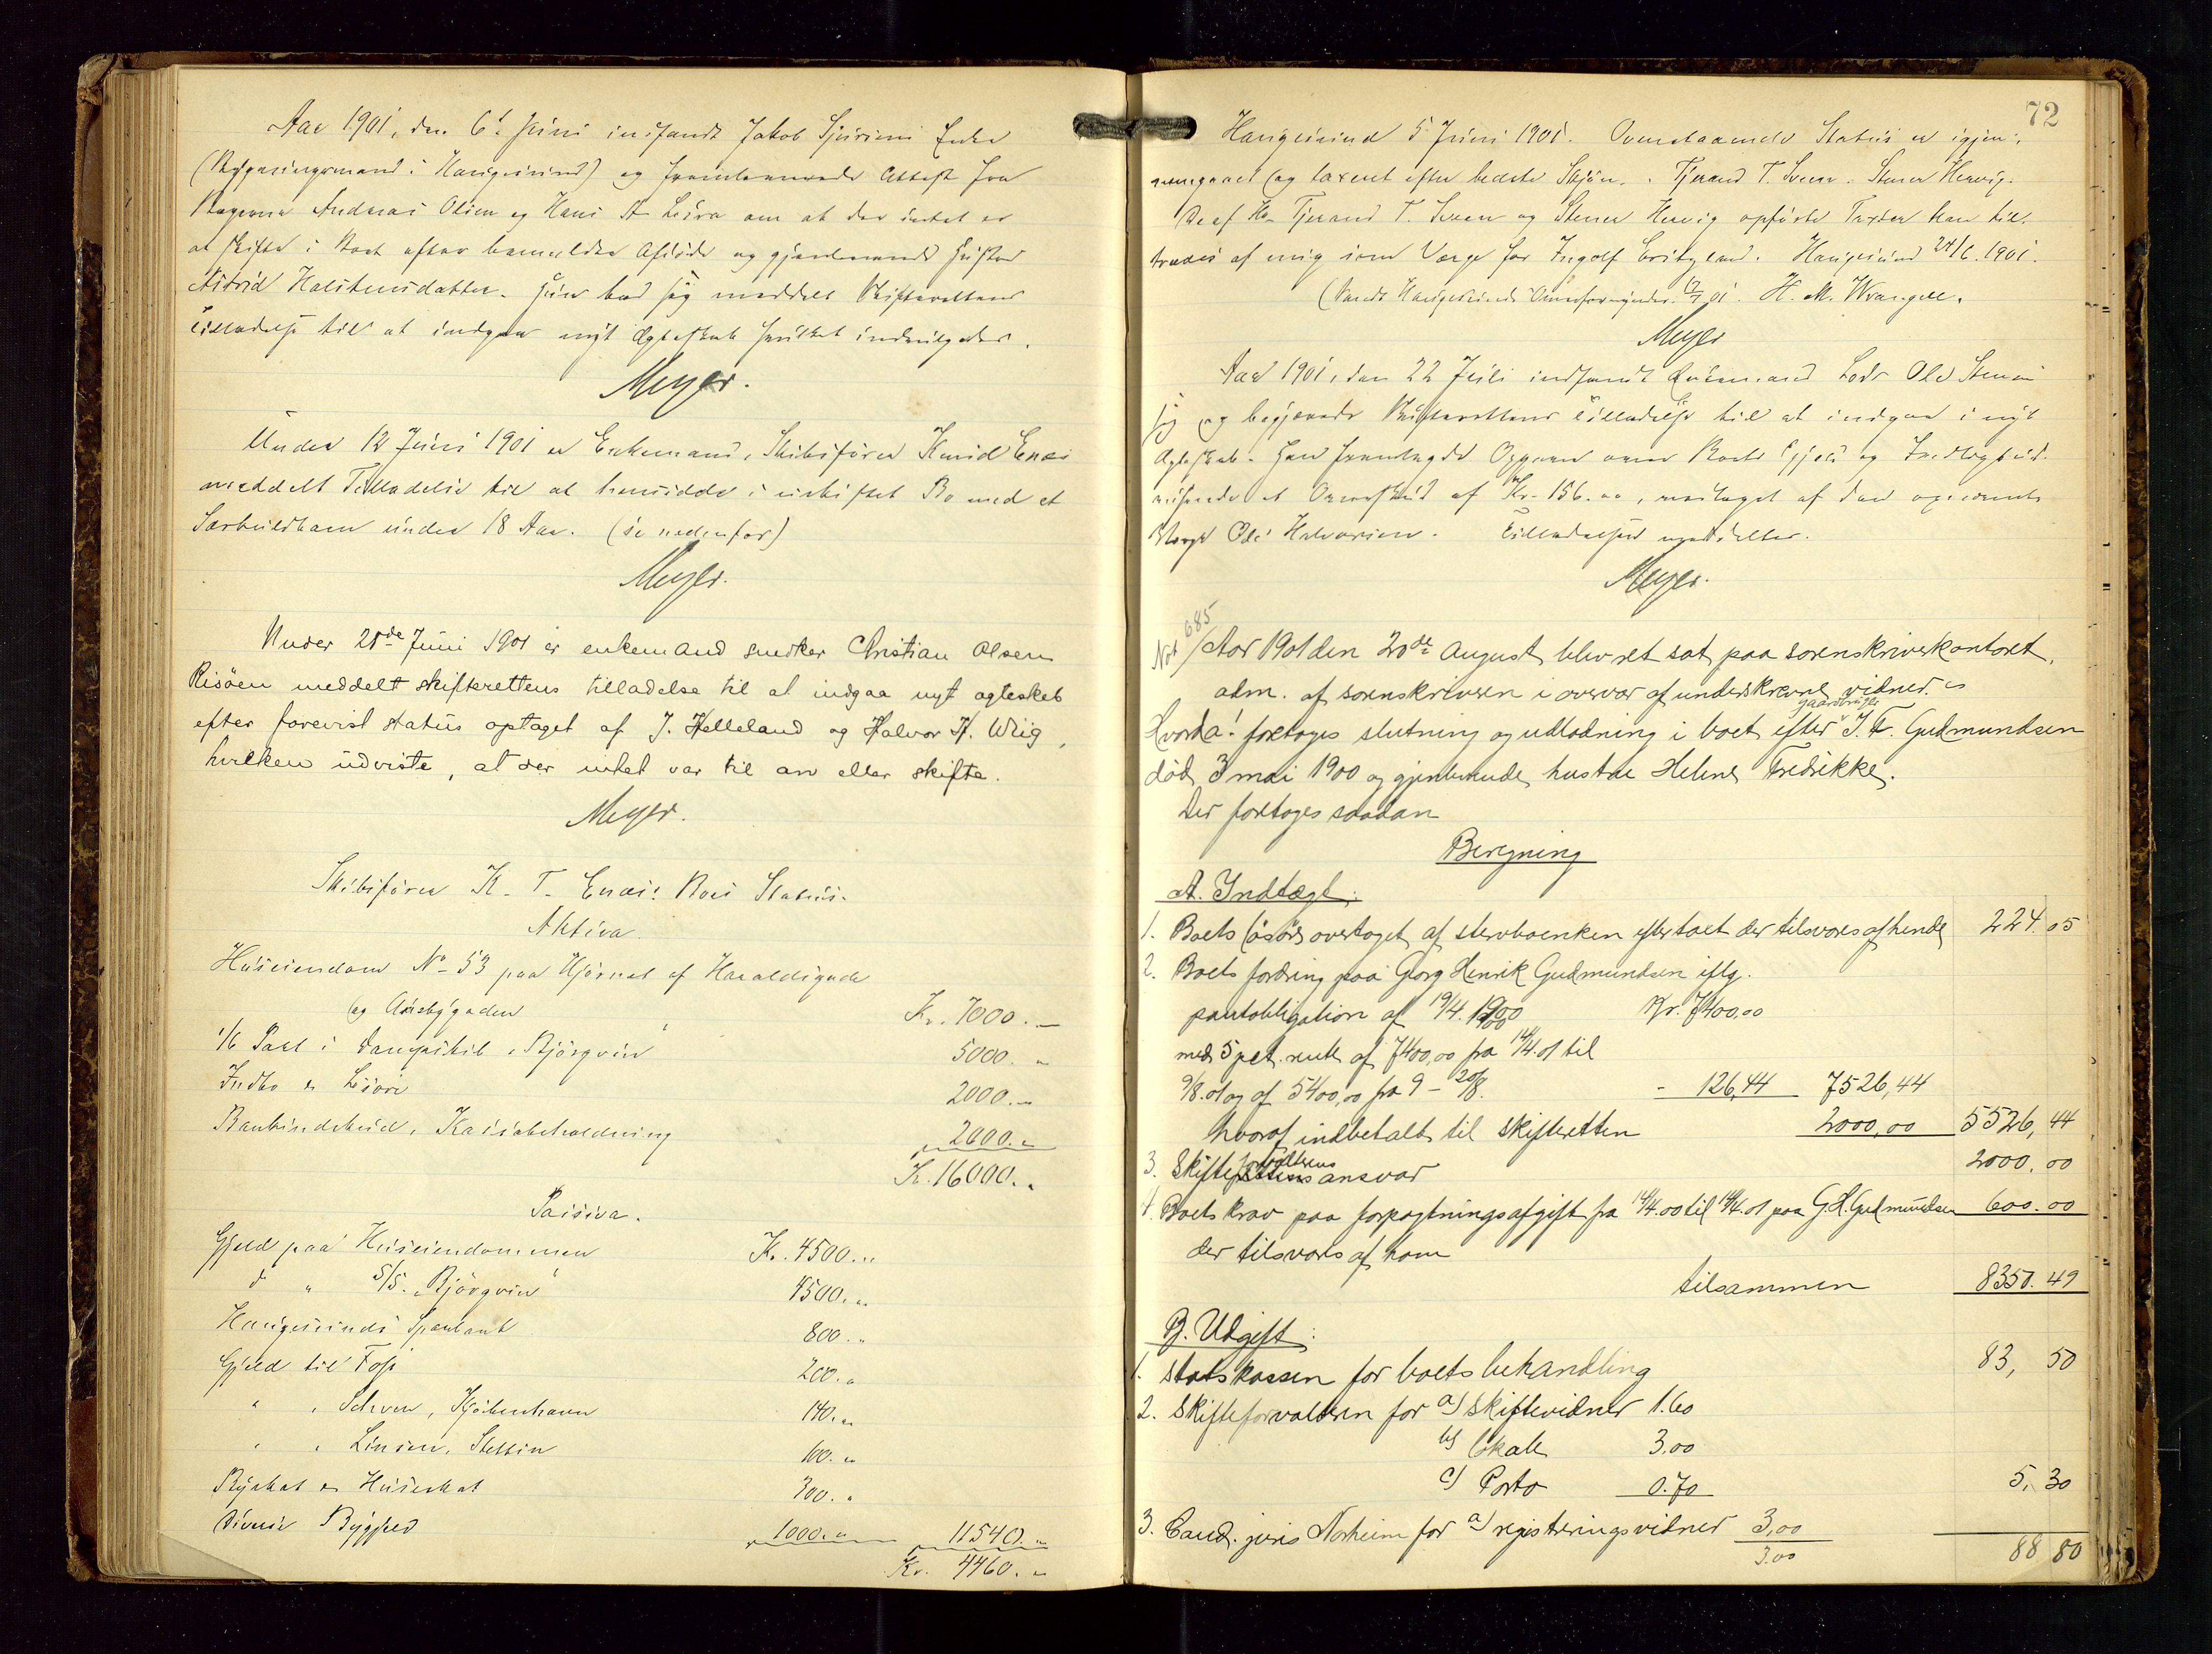 Aar 1901, den 6te Juni indfandt Jakob Enke
og fremlemnede Attest fra
Andreas Olsen og Hans A. om at der intet er
at skifte i Boet efter bemeldte Afdøde og gjenlevende Hustru
Astrid Halstensdatter. Hun bad sig meddelt Skifterettens
Tilladelse til at indgaa nyt Ægteskab hvilket indvilgedes.
Meyer.
Under 12 Juni 1901 er Enkemand, Skibsfører Knud Enæs
meddelt Tilladelse til at hensidde i uskiftet Bo med et
Særkuldbarn under 18 Aar. (se nedenfor)
Meyer.
Under 21de Juni 1901 er enkemand snedker Christian Olsen
Risöen meddelt skifterettens tilladelse til at indgaa nyt ægteskab
efter forevist status optaget af J. Helleland og Halvor H. Wiig,
hvilken udviste, at der intet var til arv eller skifte.
Meyer.
Skibsfører K. T. Enæs: Boes Status.
Aktiva.
Huseiendom No 53 paa Hjørnet af Haraldsgade
og Aasbygaden Kr. 7000. -
1/6 Part i Dampskib "Bjørgvin" 5000. "
Indbo & Løsøre 2000. "
Bankindskud, Kassabeholdning 2000. "
Kr. 16000. "
Passiva.
Gjeld paa Huseiendommen Kr. 4500. "
d " S/S. "Bjørgvin" 4500. "
Haugesunds Sparbank 800. "
Gjeld til Foss 200. "
" " , Kjøbenhavn 140. "
" " Linsen, Stettin 100. "
Byskat & Huseskat 300. "
Diverse Bygjeld 1000. " 11540. "
Kr. 4460. "
72
Haugesund 5 Juni 1901. Ovenstaaende Status er igjen-
nemgaaet og taxeret efter bedste Skjøn. Tjerand T. Sveen. Stener Hervig.
De af Hr. Tjerand T. Sveen og Stener Hervig opførte Taxter kan til-
trædes af mig som Værge for Ingolf. Haugesund 24/6. 1901.
(Sendt Haugesunds Overformynderi 17/7 01. H. M. Wrangell.
Meyer
Aar 1901, den 22 Juli indfandt Enkemand Lods Ole
sig og begjærede Skifterettens Tilladelse til at indgaa i nyt
Ægteskab. Han fremlagde Opgave over Boets Gjeld og
visende et Overskud af Kr. 156.00, modtaget af den opnævnte
Værge Ole Halvorsen. Tilladelsen meddeltes.
Meyer.
Not 685
Aar 1901 den 20de August blev ret sat paa sorenskriverkontoret,
adm. af sorenskriveren i overvær af underskrevne vidner.
Hvorda: foretoges slutning og udlodning i boet efter gaardbruger J. F. Gudmundsen
død 3 mai 1900 og gjenlevende hustru Helene Fredrikke.
Der foretoges saadan
Beregning
A. Indtægt:
1. Boets løsøre overtaget af stervboenken efter taxt der tilsvares af hende 224. 05
2. Boets fordring paa Georg Henrik Gudmundsen iflg.
pantobligation af 19/4. 1900 Kr. 7400,00
med 5 pct. rente af 7400,00 fra 14/4.01 til
9/8.01 og af 5400,00 fra 9 - 20/8. - 126,44 7526,44
hvoraf indbetalt til skifteretten 2000,00 5526, 44
3. Skifteforvalterens ansvar 2000. 00
4. Boets krav paa forpagtningsafgift fra 14/4.00 til 14/4.01 paa G. H. Gudmundsen 600. 00
der tilsvares af ham
tilsammen 8350. 49
B. Udgift:
1. Statskassen for boets behandling 83, 50
2. Skifteforvalteren for a) skiftevidner 1.60
b) lokale 3.00
c) Porto 0.70 5, 30
3. Cand. juris Norheim for a) registreringsvidner 3,00
3.00 88 80